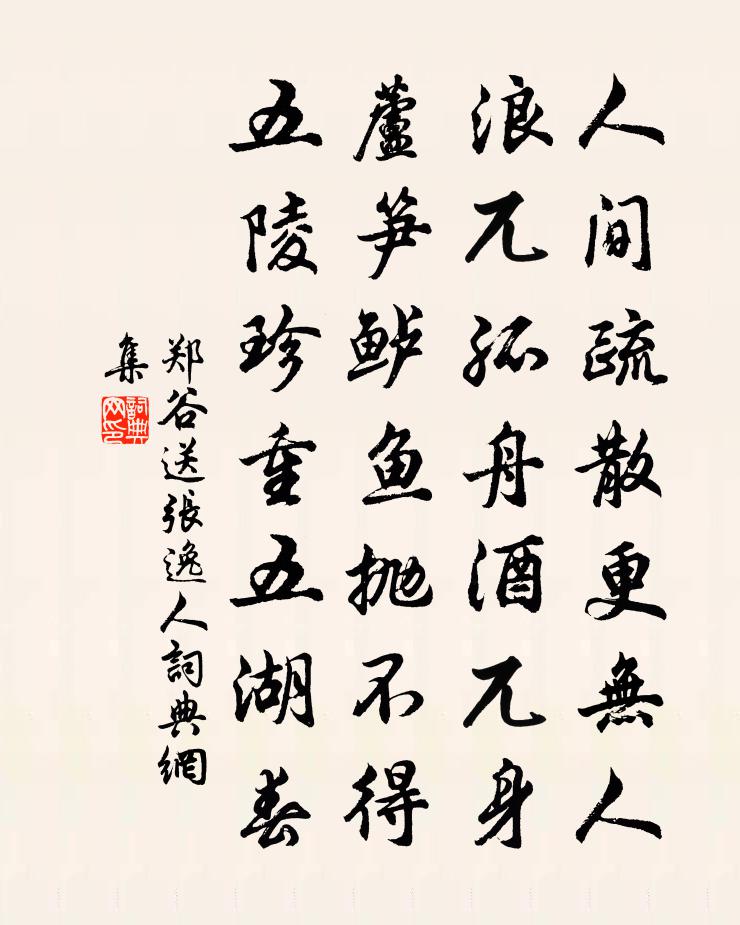 人間疏散更無人
浪兀孤舟酒兀身
蘆笋鲈鱼抛不得
五陵珍重五湖春
郑谷送張逸人詞典網
集
詞典
网印